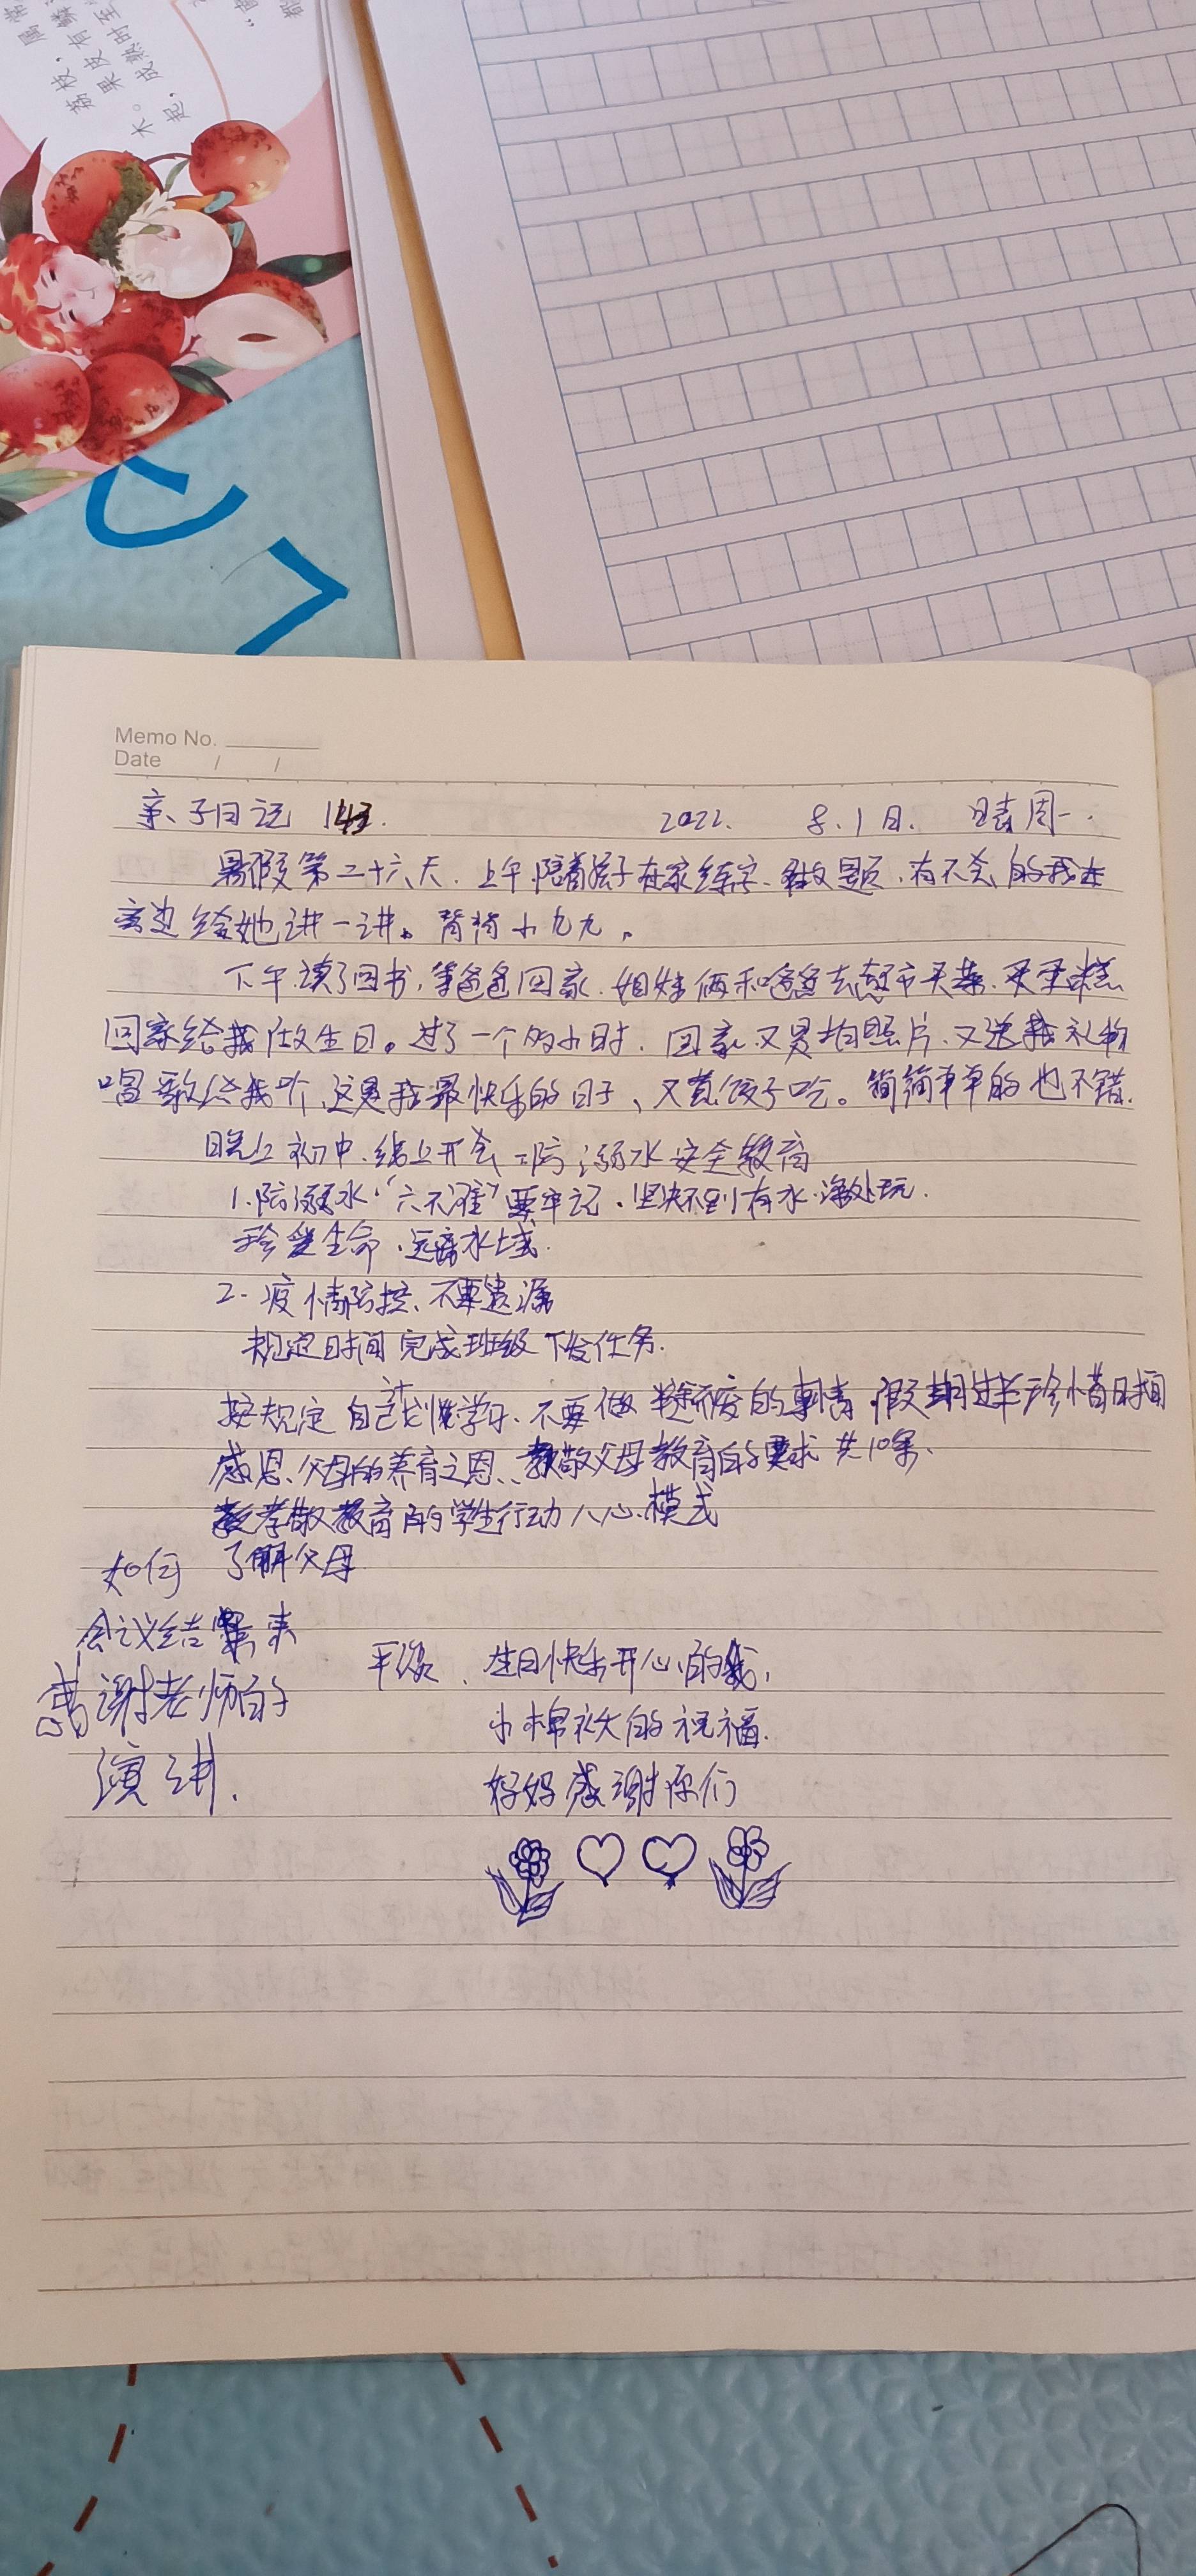 Memo No.
Date / /
亲子日记 143. 2022. 8.1日. 晴 周一.
暑假第二十六天.上午陪着孩子在家练字、做题、有不会的我在
旁边给她讲一讲。背背小九九。
下午读了回书,等爸爸回家.姐妹俩和爸爸去超市买菜、买蛋糕
回家给我做生日。过了一个多小时.回家又是拍照片、又送我礼物
唱歌给我听、这是我最快乐的日子、又煮饺子吃。简简单单的也不错.
晚上初中.线上开会 防溺水安全教育
1.防溺水“六不准”要牢记.坚决不到有水深处玩.
珍爱生命.远离水域.
2.疫情防控、不要遗漏
规定时间完成班级下发任务.
按规定自己计划学习.不要做半途而废的事情.假期过半珍惜时间
感恩、父母的养育之恩、孝敬父母教育的要求共10条、
孝敬教育的学生行动八心模式
如何 了解父母
会议结束
感谢老师的
演讲.
平俊、生日快乐开心的我,
小棉袄的祝福.
好好感谢你们